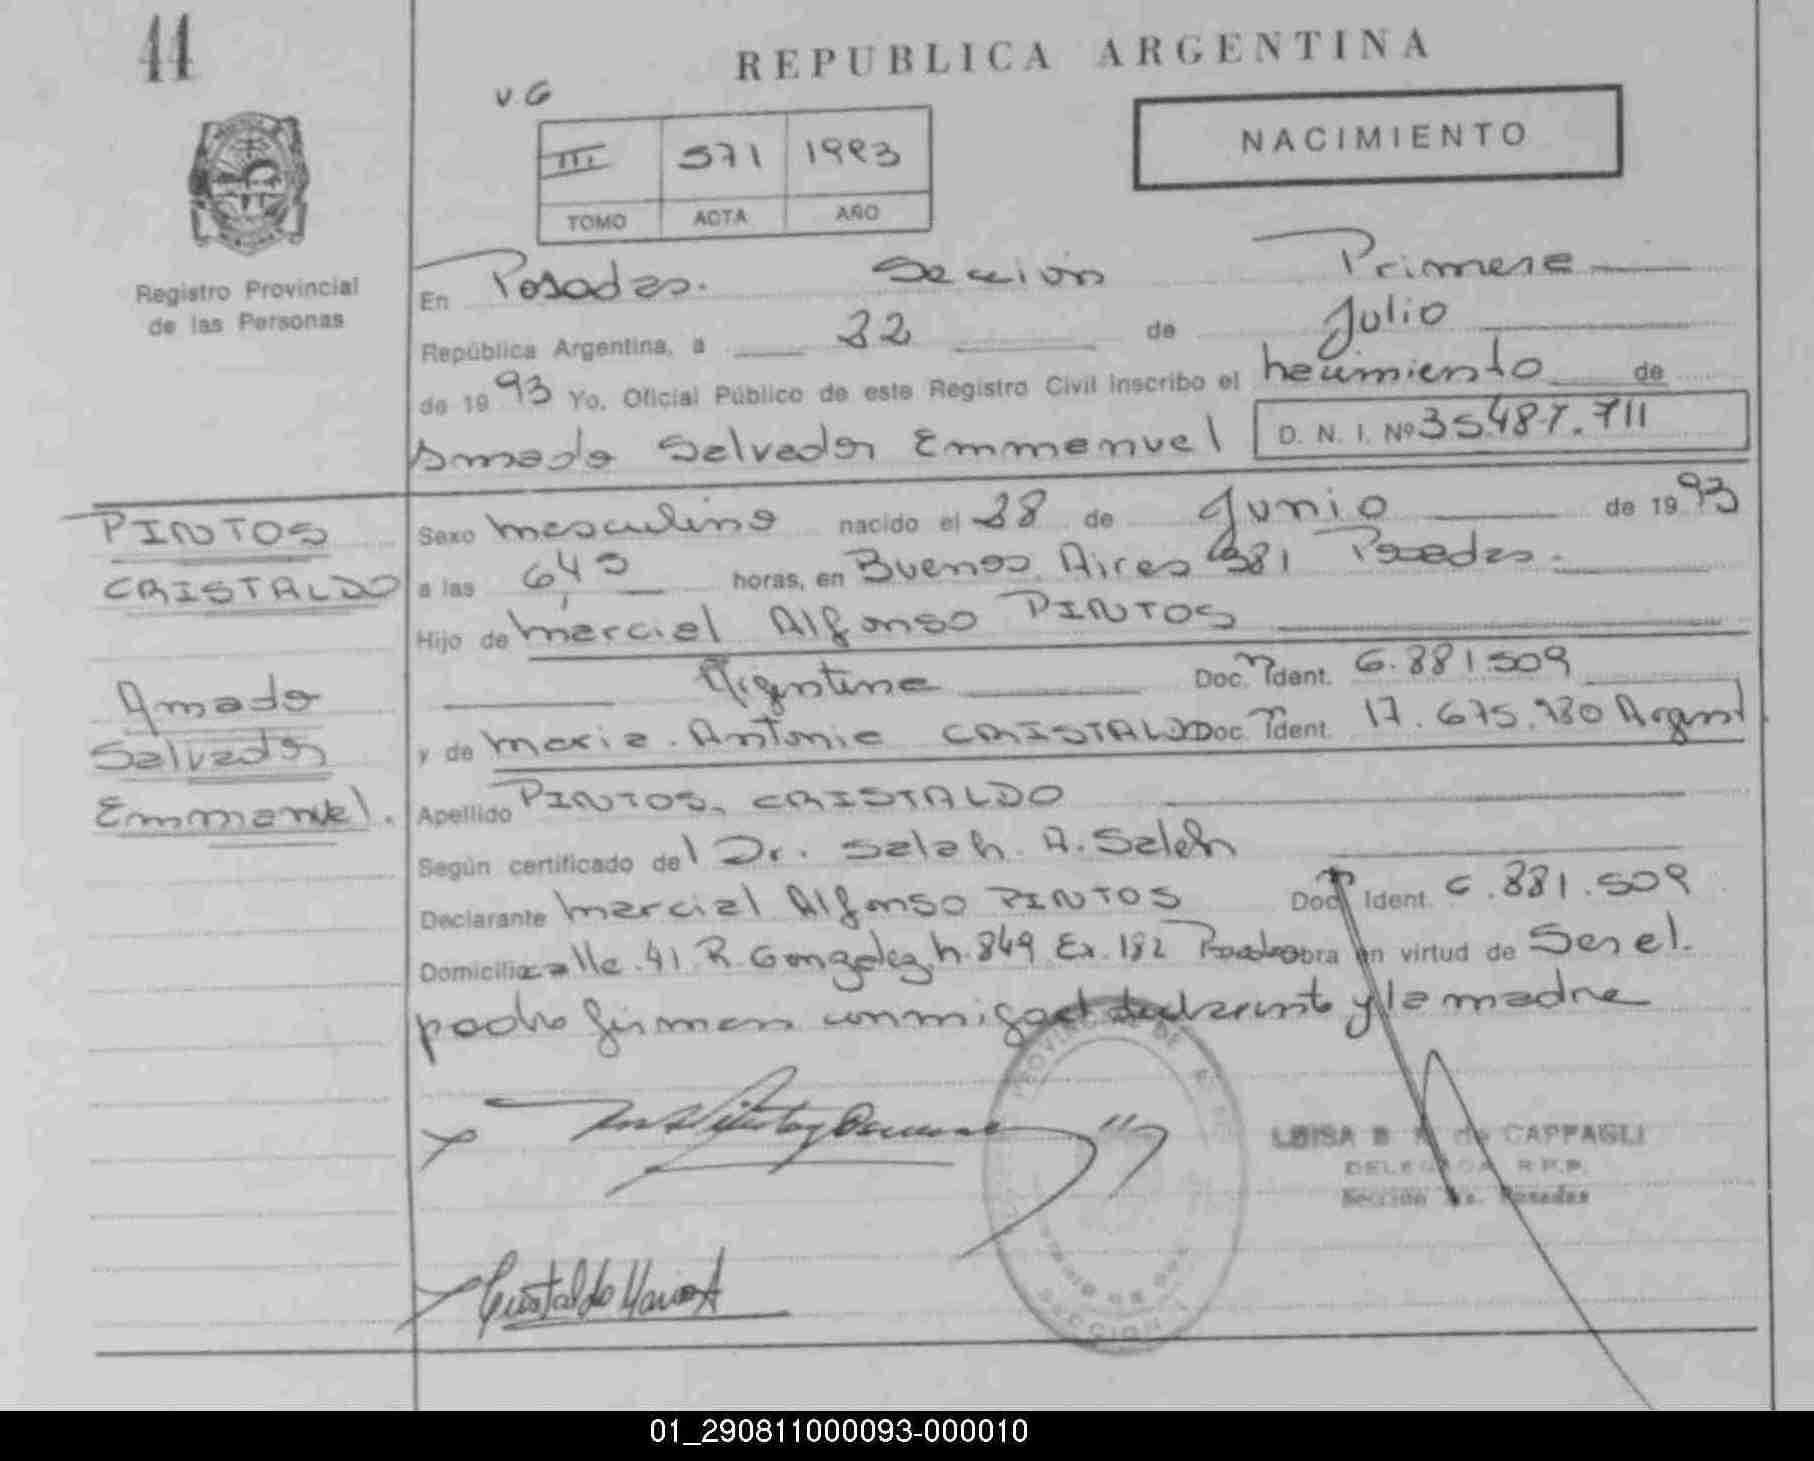 44
REPUBLICA ARGENTINA
V.G
III 571 1993
TOMO ACTA AÑO
NACIMIENTO
Registro Provincial
de las Personas
En Posadas. Sección Primera
República Argentina, a 22 de Julio
de 1993 Yo, Oficial Público de este Registro Civil inscribo el nacimiento de
Amado Salvador Emmanuel D. N. I. Nº 35.487.711
PINTOS
CRISTALDO
Amado
Salvador
Emmanuel.
Sexo masculino nacido el 28 de Junio de 1993
a las 6,45 horas, en Buenos Aires 381 Posadas.
Hijo de Marcial Alfonso PINTOS
Argentina Doc. Ident. 6.881.509
y de Maria Antonia CRISTALDO Doc. Ident. 17.675.930 Argent
Apellido PINTOS, CRISTALDO
Según certificado del Dr. Salah A. Saleh
Declarante Marcial Alfonso PINTOS Doc. Ident. 6.881.509
Domicilio calle 41 R. Gonzalez h. 849 Ex. 182 Posadas obra en virtud de Ser el
padre firman conmigo el declarante y la madre
LUISA B de CAPPAGLI
DELEGADA R.P.P.
Sección 1a. Posadas
PROVINCIA DE
SECCION 1
Cristaldo Maria A
01_290811000093-000010